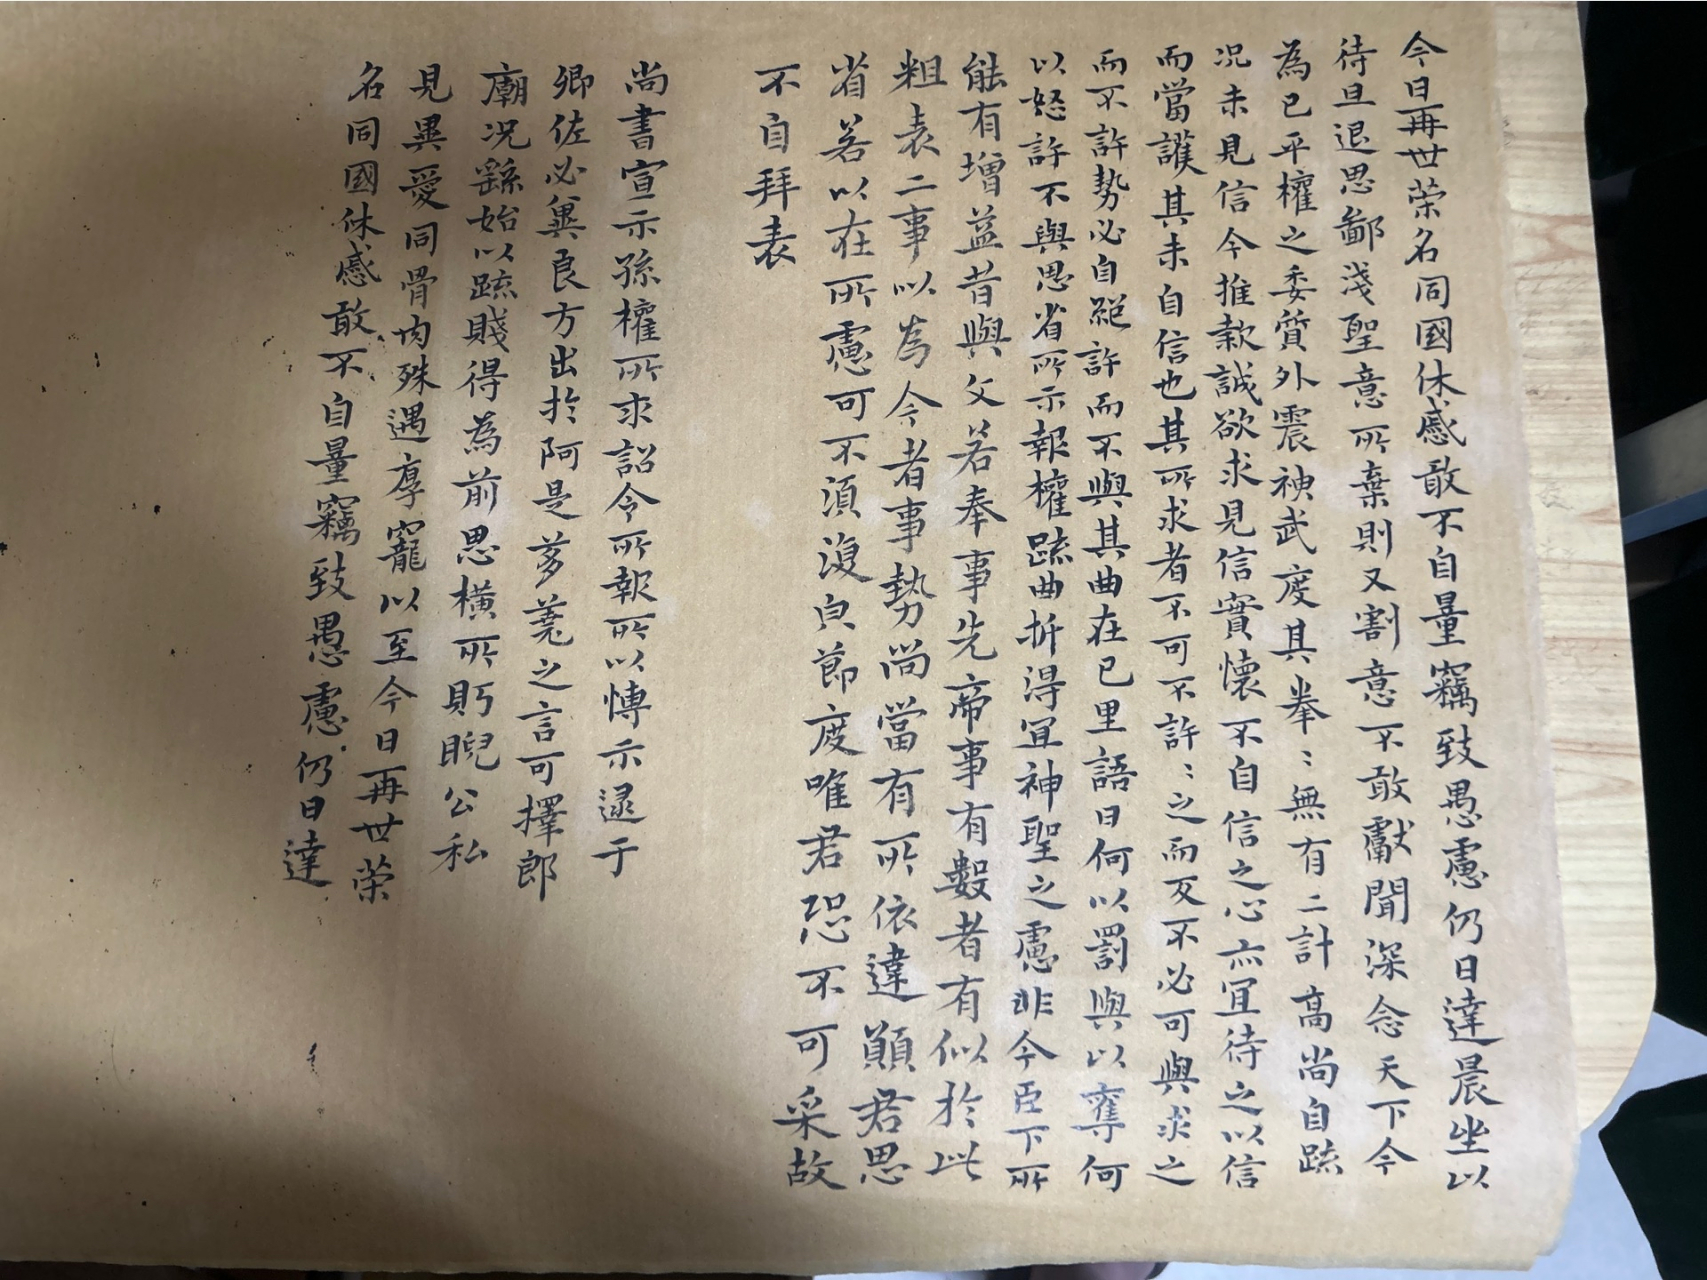 今日再世荣名同國休慼敢不自量竊致愚慮仍日達晨坐以
待旦退思鄙淺聖意所棄則又割意不敢獻聞深念天下今
為已平權之委質外震神武度其拳〻無有二計高尚自疏
况未見信今推款誠欲求見信實懷不自信之心亦宜待之以信
而當護其未自信也其所求者不可不許〻之而反不必可與求之
而不許勢必自絕許而不與其曲在己里語曰何以罰與以奪何
以怒許不與思省所示報權疏曲折得宜神聖之慮非今臣下所
能有增益昔與文若奉事先帝事有數者有似於此
粗表二事以為今者事勢尚當有所依違願君思
省若以在所慮可不須復皃節度唯君恐不可采故
不自拜表
尚書宣示孫權所求詔令所報所以慱示逮于
卿佐必冀良方出於阿是芻蕘之言可擇郎
廟况繇始以疏賤得為前恩橫所眄睨公私
見異愛同骨肉殊遇厚寵以至今日再世荣
名同國休慼敢不自量竊致愚慮仍日達